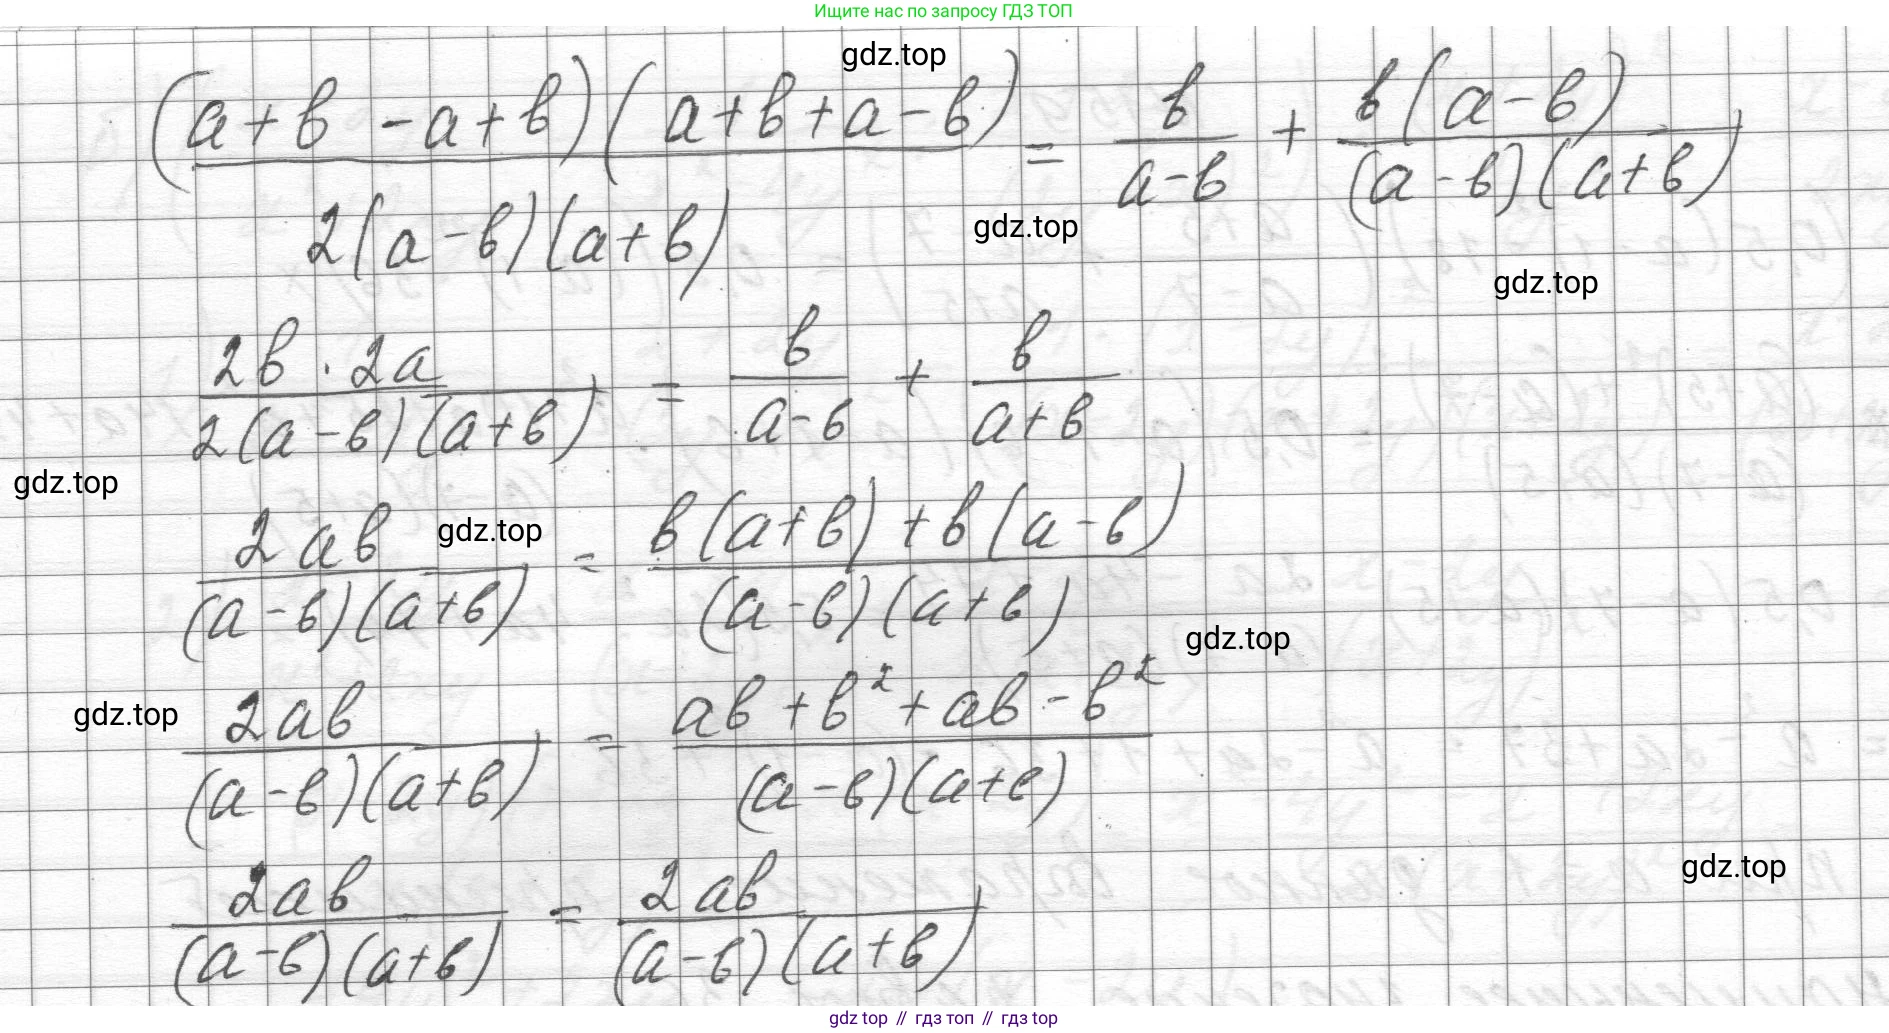 Ищите нас по запросу ГДЗ ТОП
gdz.top
(a+b -a+b)(a+b+a-b) / 2(a-b)(a+b) = b/(a-b) + b(a-b)/((a-b)(a+b))
gdz.top
gdz.top
2b · 2a / 2(a-b)(a+b) = b/(a-b) + b/(a+b)
gdz.top
gdz.top
2ab / (a-b)(a+b) = b(a+b)+b(a-b) / (a-b)(a+b)
gdz.top
gdz.top
2ab / (a-b)(a+b) = ab+b²+ab-b² / (a-b)(a+b)
gdz.top
2ab / (a-b)(a+b) = 2ab / (a-b)(a+b)
gdz top // гдз топ // гдз top